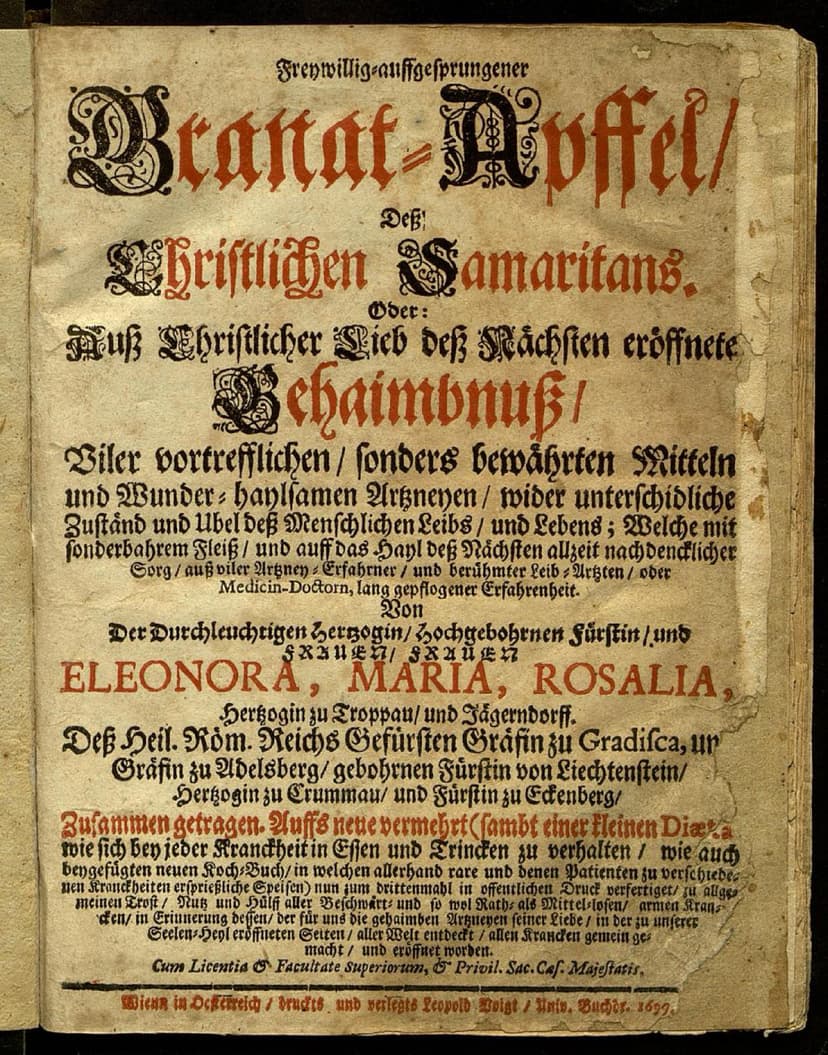 Freywillig-auffgesprungener
Granat-Apffel/
Deß
Christlichen Samaritans.
Oder:
Auß Christlicher Lieb deß Nächsten eröffnete
Gehaimbnuß/
Viler vortrefflichen / sonders bewährten Mitteln
und Wunder-haylsamen Artzneyen / wider unterschidliche
Zuständ und Ubel deß Menschlichen Leibs / und Lebens; Welche mit
sonderbahrem Fleiß / und auff das Hayl deß Nächsten allzeit nachdencklicher
Sorg / auß viler Artzney-Erfahrner / und berühmter Leib-Artzten / oder
Medicin-Doctorn, lang gepflogener Erfahrenheit.
Von
Der Durchleuchtigen Hertzogin/ Hochgebohrnen Fürstin/ und
FRAUEN/ FRAUEN
ELEONORA, MARIA, ROSALIA,
Hertzogin zu Troppau/ und Jägerndorff.
Deß Heil. Röm. Reichs Gefürsten Gräfin zu Gradisca, un
Gräfin zu Adelsberg/ gebohrnen Fürstin von Liechtenstein/
Hertzogin zu Crummau/ und Fürstin zu Eckenberg/
Zusammen getragen. Auffs neue vermehrt (sambt einer kleinen Diæta
wie sich bey jeder Kranckheit in Essen und Trincken zu verhalten / wie auch
beygefügten neuen Koch-Buch/ in welchen allerhand rare und denen Patienten zu verschiede-
nen Kranckheiten ersprießliche Speisen) nun zum drittenmahl in offentlichen Druck verfertiget/ zu allge-
meinen Trost / Nutz und Hülff aller Beschwärt- und so wol Rath- als Mittel-losen/ armen Kran-
cken/ in Erinnerung dessen/ der für uns die gehaimben Artzneyen seiner Liebe / in der zu unserer
Seelen-Heyl eröffneten Seiten / aller Welt entdeckt / allen Krancken gemein ge-
macht / und eröffnet worden.
Cum Licentia & Facultate Superiorum, & Privil. Sac. Cæs. Majestatis.
Wienn in Oesterreich / druckts und verlegts Leopold Voigt / Univ. Buchdr. 1699.